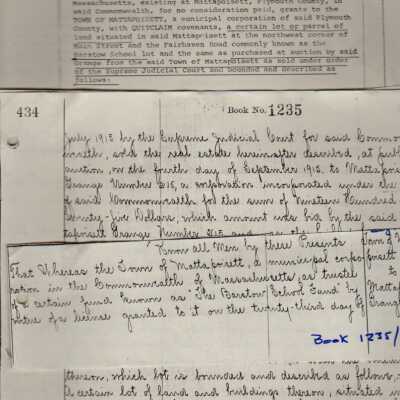 Massachusetts, existing at Mattapoisett, Plymouth County, in
said Commonwealth, for no consideration paid, grants to the
TOWN OF MATTAPOISETT, a municipal corporation of said Plymouth
County, with QUITCLAIM covenants, a certain lot or parcel of
land situated in said Mattapoisett at the northwest corner of
Main Street and the Fairhaven Road commonly known as the
Barstow School lot and the same as purchased at auction by said
Grange from the said Town of Mattapoisett as sold under order
of the Supreme Judicial Court and bounded and described as
follows:
434 Book No. 1235
July 1913 by the Supreme Judicial Court for said Common
wealth, sold the real estate hereinafter described, at publ
auction, on the fourth day of September 1913, to Mattapois
Grange Number 215, a corporation incorporated under the
of said Commonwealth for the sum of Nineteen Hundred
Seventy-five Dollars, which amount was bid by the said
tapoisett Grange Number 215
Know all Men by these Presents
That Whereas the Town of Mattapoisett, a municipal corpo
ration in the Commonwealth of Massachusetts, as trustee
of a certain fund known as "The Barstow School Fund" by
virtue of a license granted to it on the twenty-third day of
Town of
poisett
to
Mattap
Grang
Book 1235/
thereon, which lot is bounded and described as follows,
A certain lot of land and buildings thereon, situated in